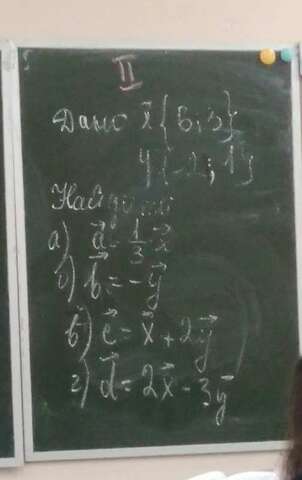 II
Дано x⃗{6; 3}
y{-2; 1}
Найдите
а) a⃗ = 1/3 x⃗
б) b⃗ = -y⃗
в) c⃗ = x⃗ + 2y⃗
г) d⃗ = 2x⃗ - 3y⃗